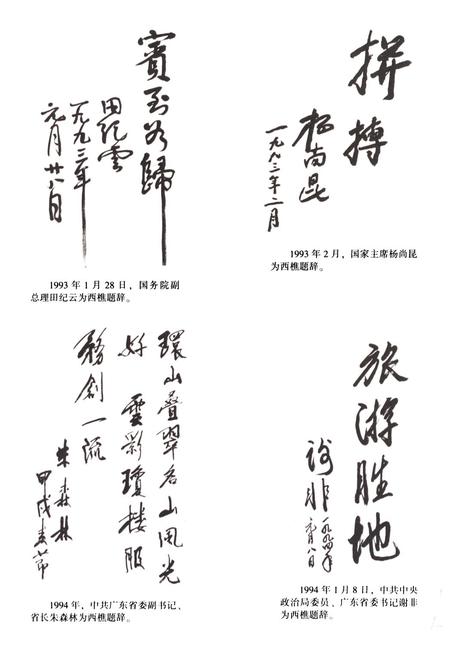 賓至如歸
田紀雲
一九九三年
元月廿八日
1993 年 1 月 28 日，国务院副
总理田纪云为西樵题辞。
拼搏
杨尚昆
一九九三年二月
1993 年 2 月，国家主席杨尚昆
为西樵题辞。
環山疊翠名山風光
好 雲影瓊楼服
務創一流
朱森林
甲戌春节
1994 年，中共广东省委副书记、
省长朱森林为西樵题辞。
旅游胜地
谢非
一九九四年
元月八日
1994 年 1 月 8 日，中共中央
政治局委员、广东省委书记谢非
为西樵题辞。